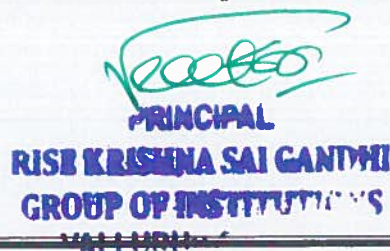 PRINCIPAL
RISE KRISHNA SAI GANDHI
GROUP OF INSTITUTIONS